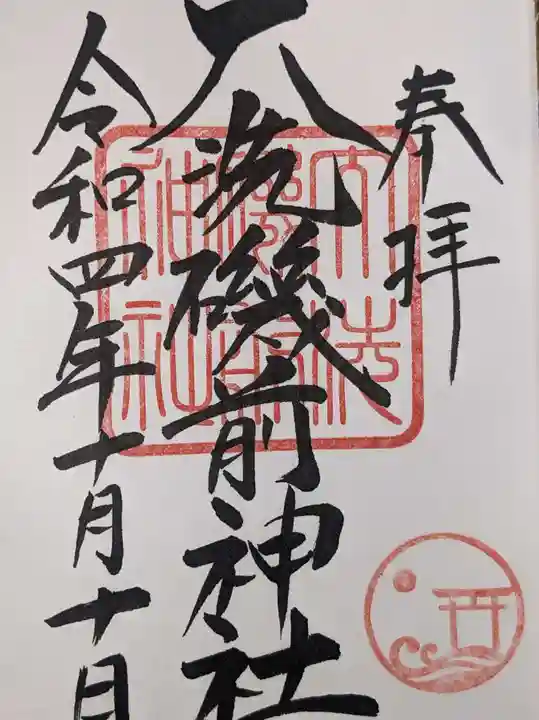 奉拝
大洗磯前神社
令和四年十月十日
大洗
磯前
神社